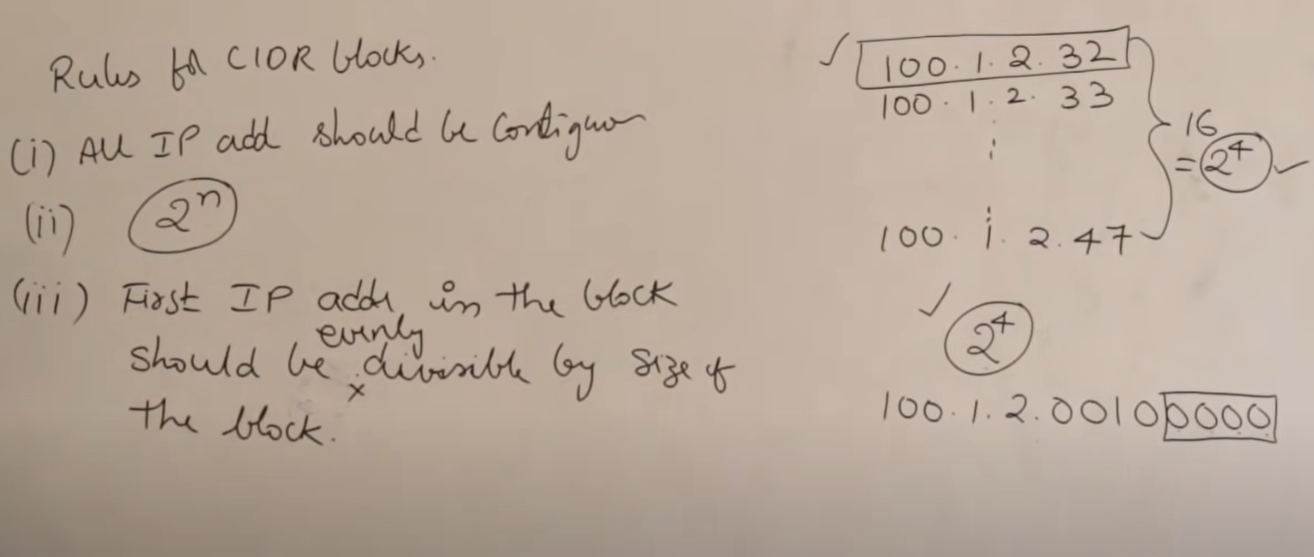 Rules for CIDR blocks.
(i) All IP add should be Contiguou
(ii) 2ⁿ
(iii) First IP addr in the block
should be evenly divisible by size of
the block.
100.1.2.32
100.1.2.33
⋮
⋮
100.1.2.47
16
= 2⁴
2⁴
100.1.2.00100000